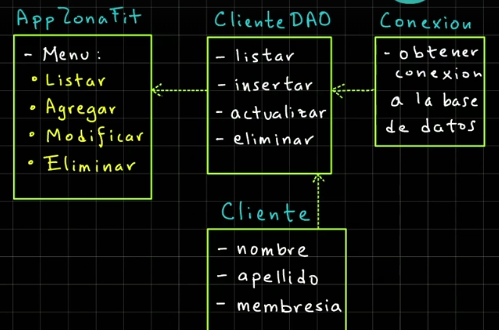 AppZonaFit
- Menu:
• Listar
• Agregar
• Modificar
• Eliminar
ClienteDAO
- listar
- insertar
- actualizar
- eliminar
Conexion
- obtener
conexion
a la base
de datos
Cliente
- nombre
- apellido
- membresia